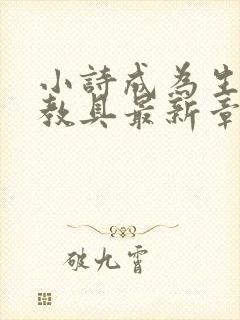 小詩成為生
教具最新章
破九霄